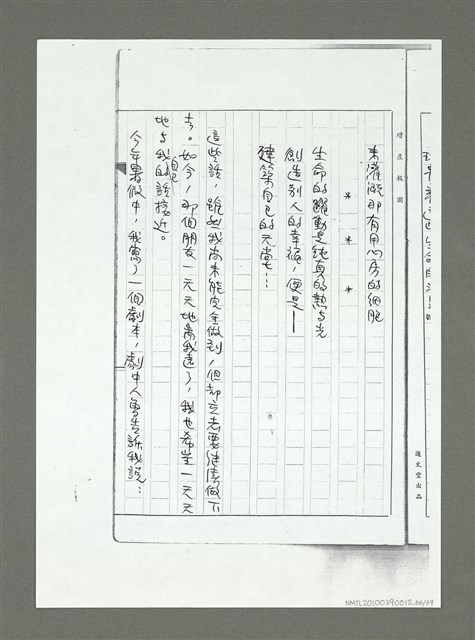 來灌溉那有用心房的細胞
* * *
生命的躍動是純真的熱与光
創造別人的幸福，便是——
建築自己的天堂……
這些話，雖然我尚未能完全做到，但却立志要繼續做下
去。如今，那個朋友一天天地离我遠了，我也希望一天天
地与我自己的話接近。
今年暑假中，我寫了一個劇本，劇中人曾告訴我說：
增產報國
進文堂出品
NMTL20100390012.66/69